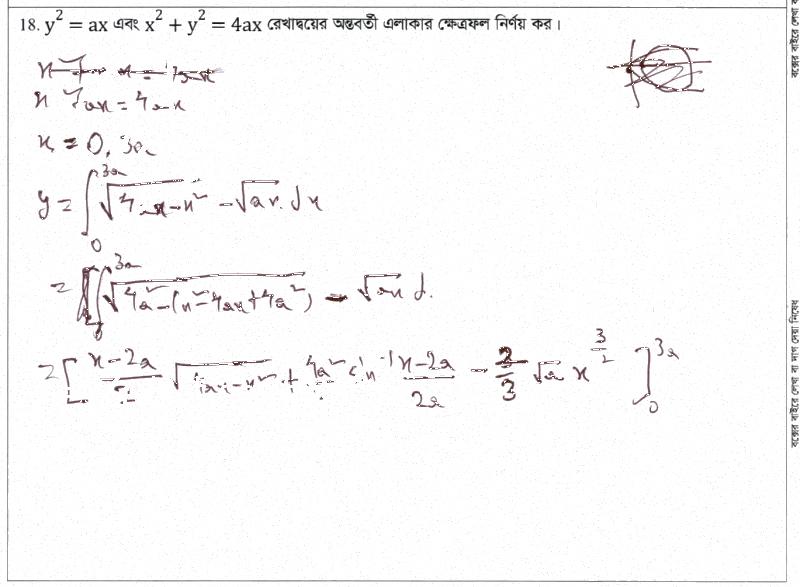 18. y² = ax এবং x² + y² = 4ax রেখাদ্বয়ের অন্তবর্তী এলাকার ক্ষেত্রফল নির্ণয় কর।
x = 0, 3a
y = ∫₀^{3a} √(4ax-x²) - √ax. dx
= ∫₀^{3a} √(4a²-(x²-4ax+4a²)) - √ax d.
= [ (x-2a)/2 √(4ax-x²) + 4a²/2 sin⁻¹ (x-2a)/2a - 2/3 √a x^{3/2} ]₀^{3a}
বক্সের বাইরে লেখা বা দাগ দেয়া নিষেধ